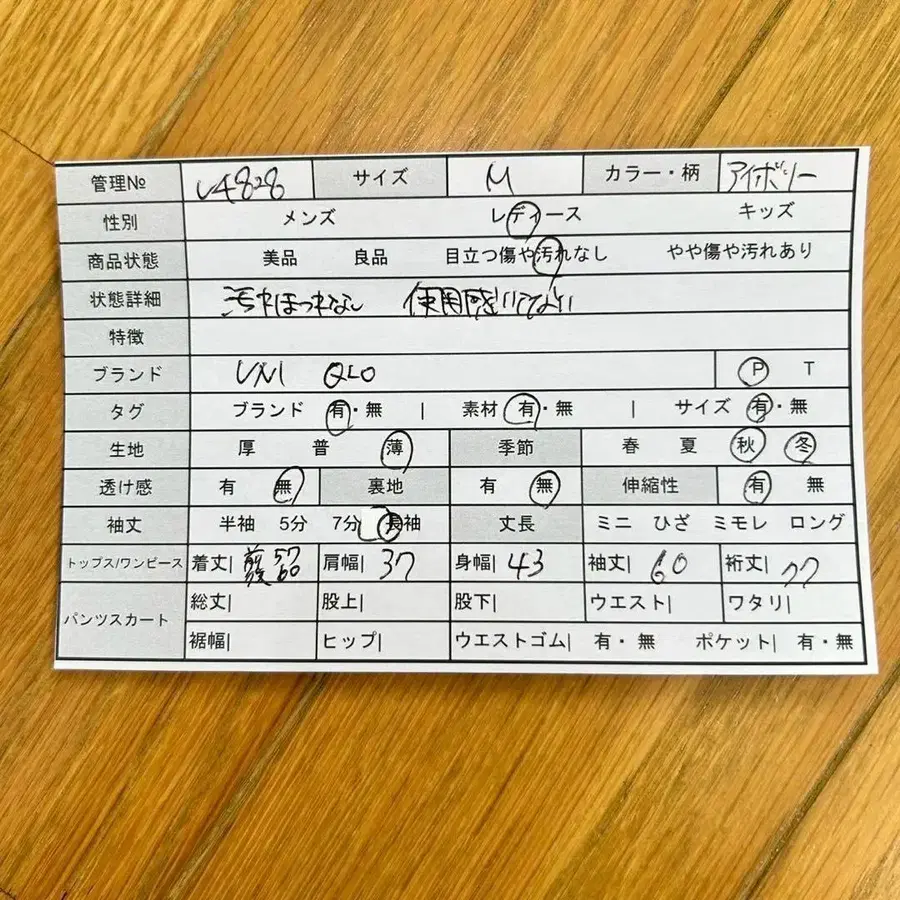 管理№ V4828 サイズ M カラー・柄 アイボリー
性別 メンズ レディース キッズ
商品状態 美品 良品 目立つ傷や汚れなし やや傷や汚れあり
状態詳細 汚れほつれなし 使用感
特徴
ブランド UNI QLO P T
タグ ブランド 有・無 | 素材 有・無 | サイズ 有・無
生地 厚 普 薄 季節 春 夏 秋 冬
透け感 有 無 裏地 有 無 伸縮性 有 無
袖丈 半袖 5分 7分 長袖 丈長 ミニ ひざ ミモレ ロング
トップス/ワンピース 着丈| 前57 後60 肩幅| 37 身幅| 43 袖丈| 60 裄丈| 77
パンツスカート 総丈| 股上| 股下| ウエスト| ワタリ|
裾幅| ヒップ| ウエストゴム| 有・無 ポケット| 有・無